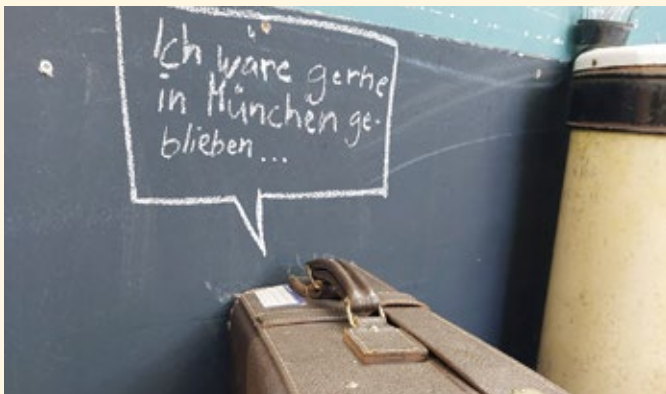 Ich wäre gerne
in München ge-
blieben...